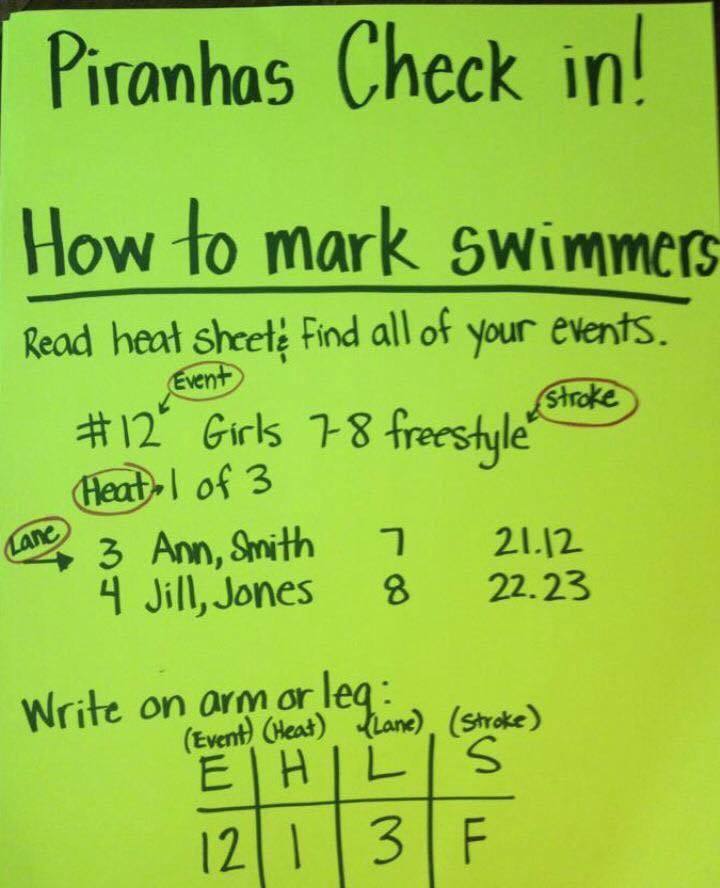 Piranhas Check in!
How to mark swimmers
Read heat sheet & Find all of your events.
Event
#12 Girls 7-8 freestyle stroke
Heat 1 of 3
Lane
3 Ann, Smith 7 21.12
4 Jill, Jones 8 22.23
Write on arm or leg:
(Event) (Heat) (Lane) (Stroke)
E H L S
12 1 3 F